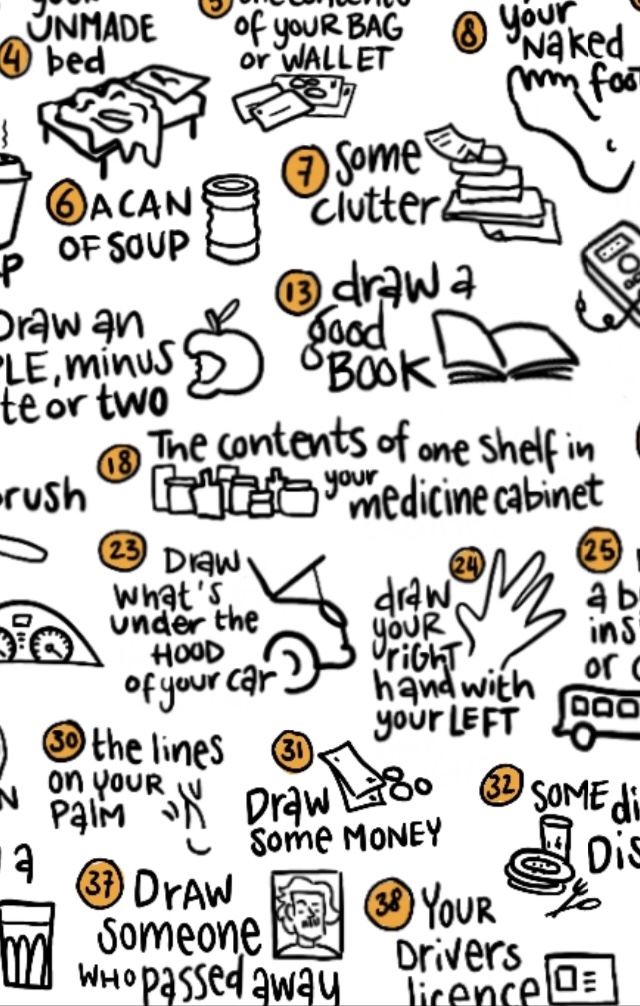 UNMADE
4 bed
of youR BAG
or WALLET
8 your
Naked
foot
6 A CAN
OF SOUP
7 some
clutter
Draw an
minus
or two
13 draw a
good
BOOK
18 The contents of one shelf in
your
medicine cabinet
23 Draw
what's
under the
HOOD
of your car
24
draw
youR
rigHT
hand with
your LEFT
25
or
30 the lines
on YOUR
Palm
31
Draw
some MONEY
32 SOME
a
37 DrAW
someone
WHO passed away
38 YOUR
Drivers
licence